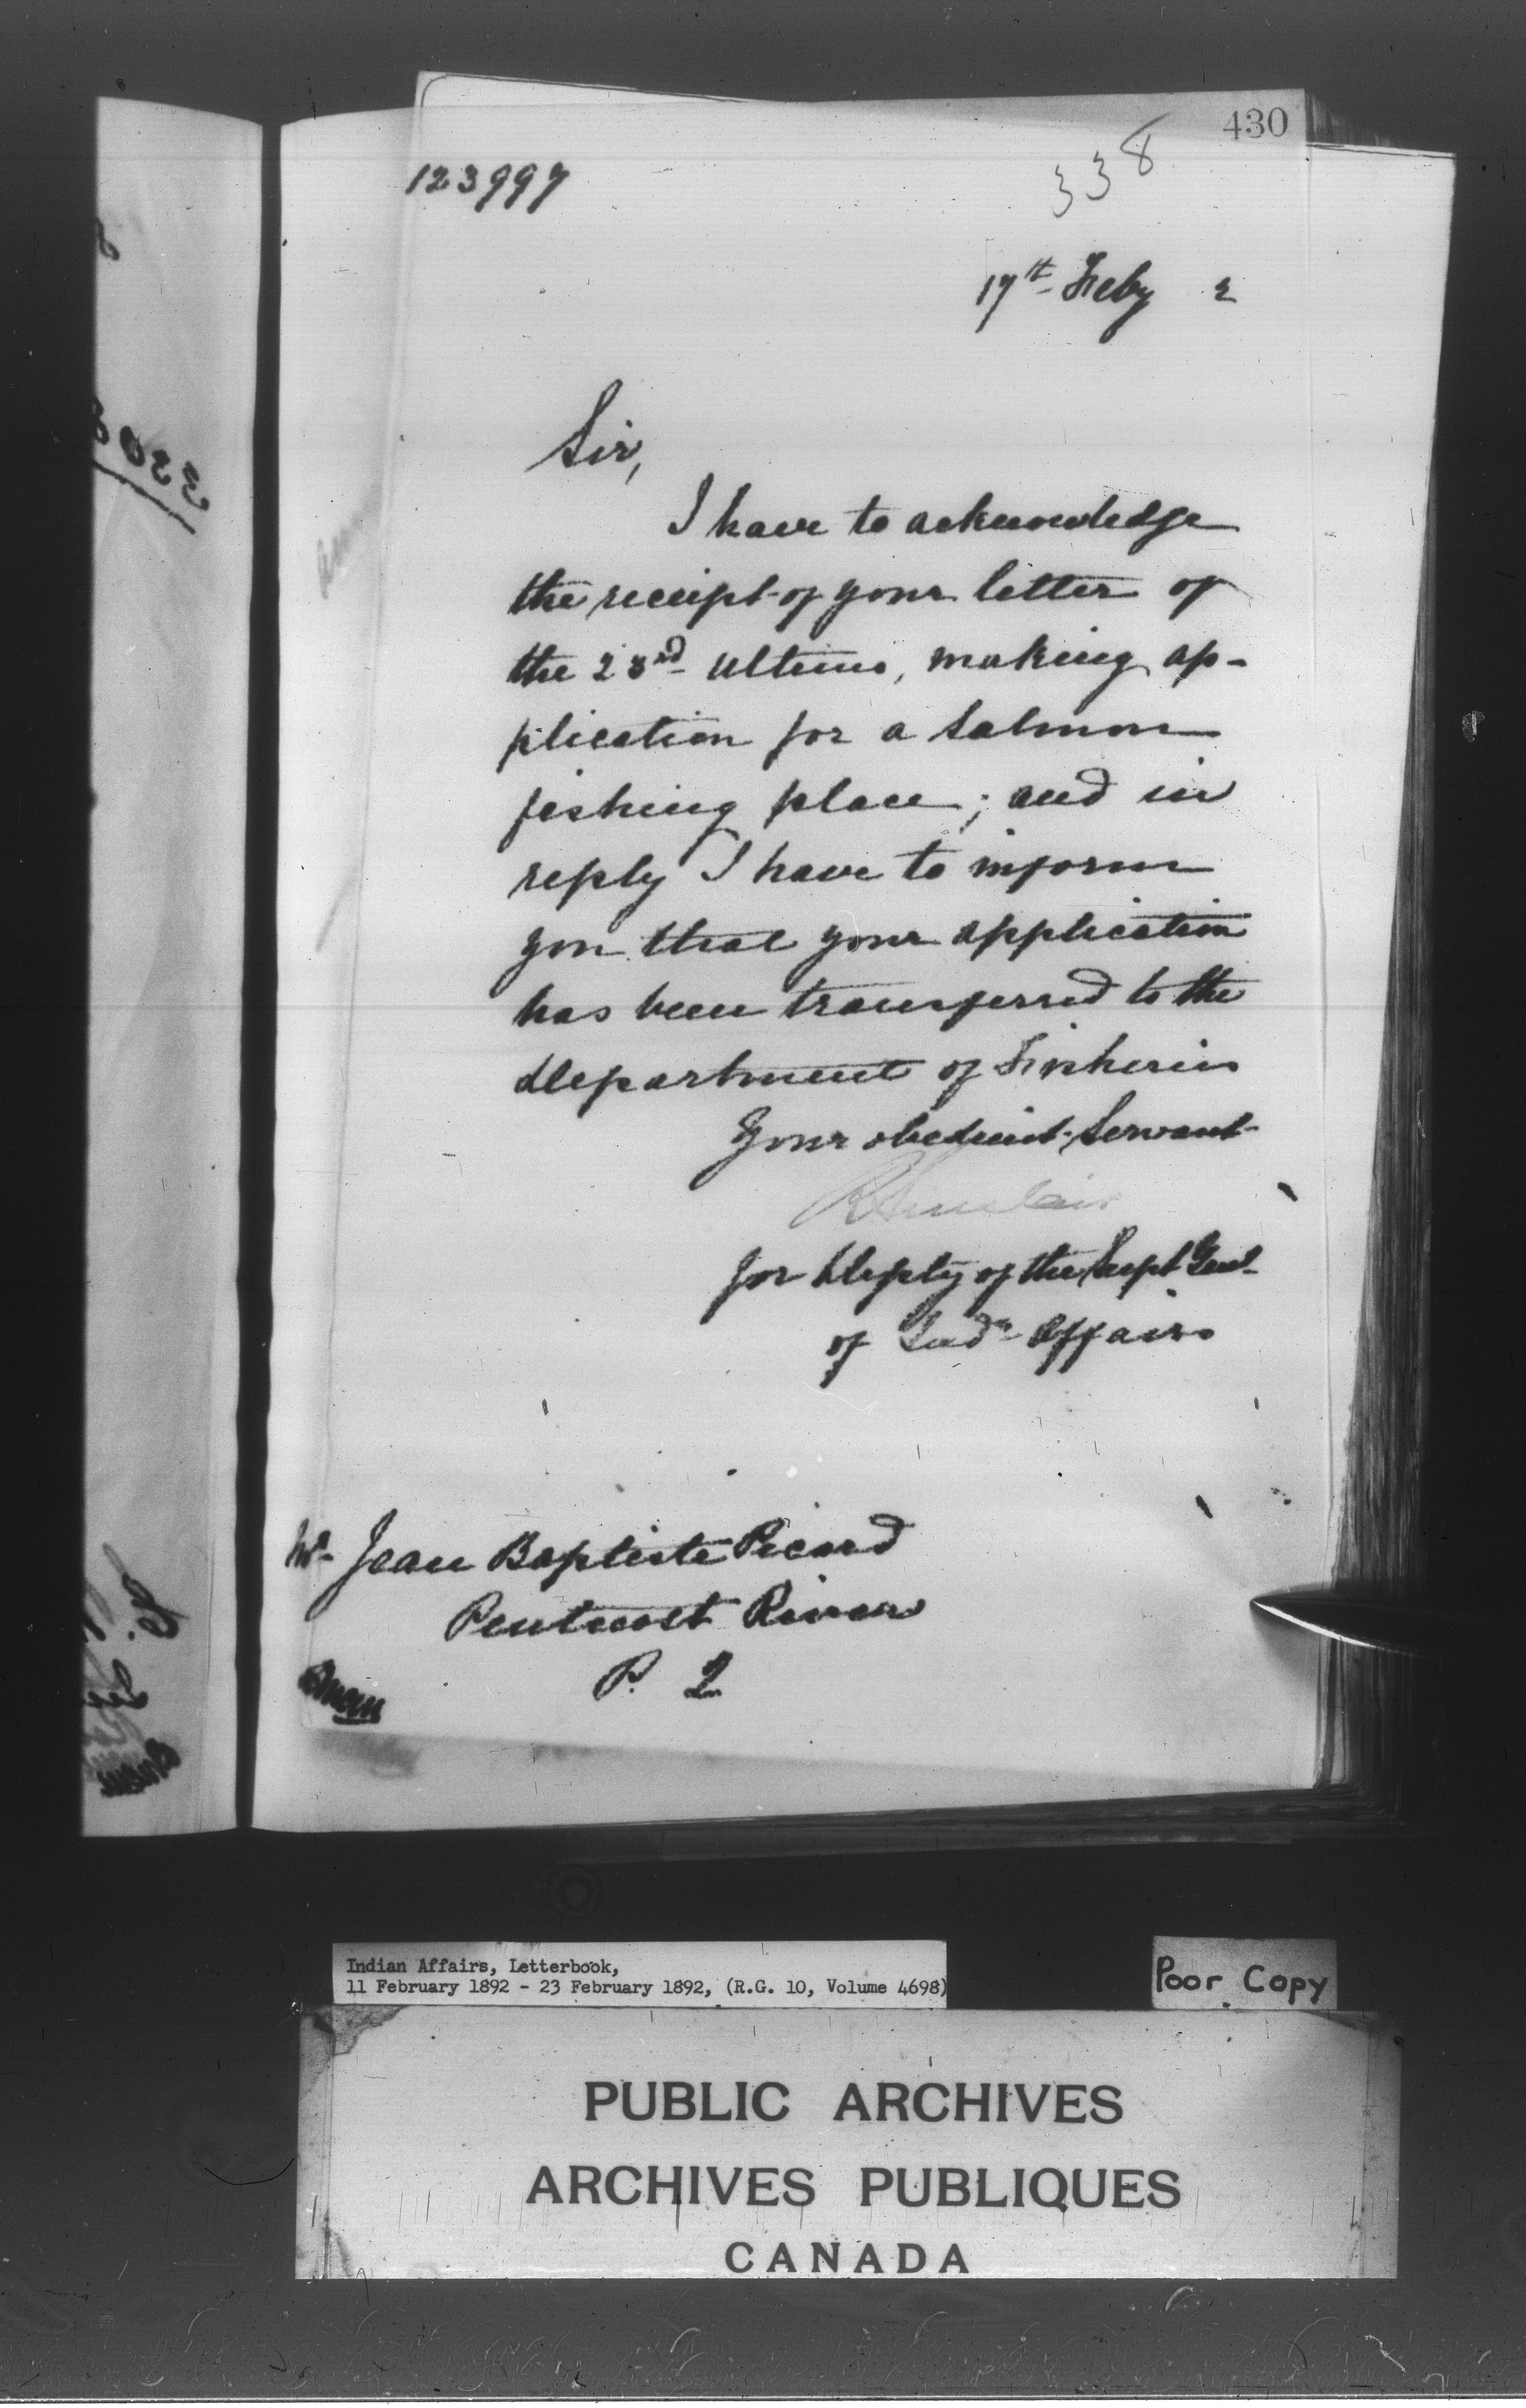 430
338
123997
17th Feby 2
Sir,
I have to acknowledge
the receipt of your letter of
the 23rd ultimo, making ap-
plication for a Salmon
fishing place; and in
reply I have to inform
you that your application
has been transferred to the
Department of Fisheries
Your obedient Servant
R Sinclair
for Deputy of the Supt Genl
of Indn Affairs
Mr Jean Baptiste Picard
Pentecost River
P. Q
Indian Affairs, Letterbook,
11 February 1892 - 23 February 1892, (R.G. 10, Volume 4698)
Poor Copy
PUBLIC ARCHIVES
ARCHIVES PUBLIQUES
CANADA